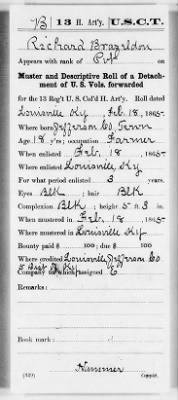 B | 13 H. Art'y. | U.S.C.T.
Richard Brazeldon
Appears with rank of Pvt on
Muster and Descriptive Roll of a Detach-
ment of U. S. Vols. forwarded
for the 13 Reg't U. S. Col'd H. Art'y. Roll dated
Louisville Ky, Feb. 18, 1865.
Where born Jefferson Co, Tenn
Age 18 y'rs; occupation Farmer
When enlisted Feb. 18, 1865.
Where enlisted Louisville Ky
For what period enlisted years.
Eyes Blk; hair Blk
Complexion Blk; height 5 ft. 3 in.
When mustered in Feb. 18, 1865.
Where mustered in Louisville Ky
Bounty paid $ 100; due $ 100
Where credited Louisville Jefferson Co
5 Dist Ky
Company to which assigned
Remarks:
Book mark:
Copyist.